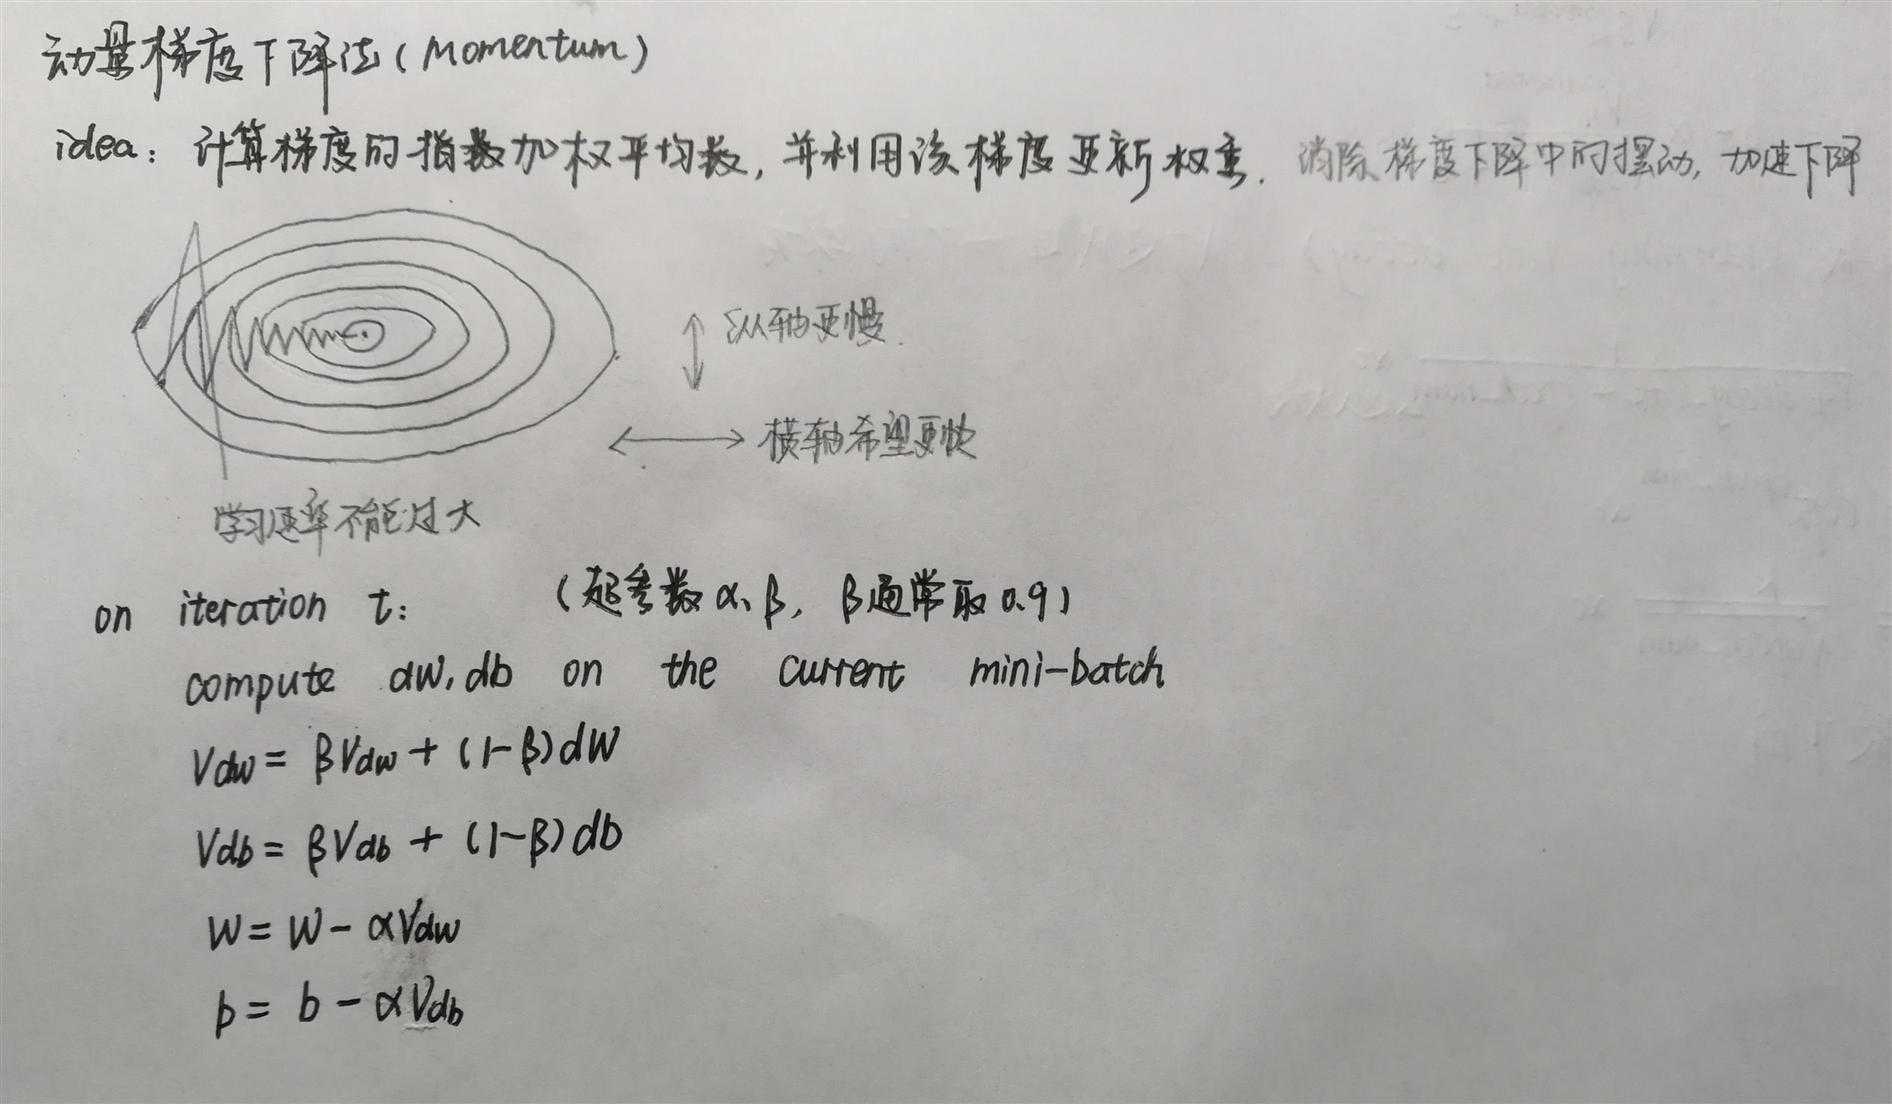 动量梯度下降法(Momentum)
idea: 计算梯度的指数加权平均数, 并利用该梯度更新权重. 消除梯度下降中的摆动, 加速下降
纵轴更慢.
横轴希望更快
学习速率不能过大
on iteration t: (超参数α、β, β通常取0.9)
compute dW, db on the current mini-batch
Vdw = βVdw + (1-β)dW
Vdb = βVdb + (1-β)db
W = W - αVdw
b = b - αVdb